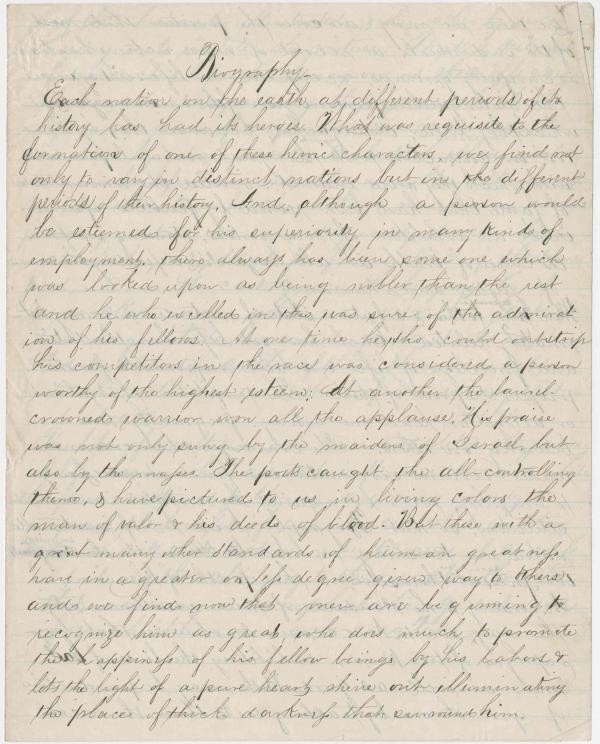 Biography.
Each nation on the earth at different periods of its
history has had its heroes. What was requisite to the
formation of one of these heroic characters, we find not
only to vary in distinct nations but in the different
periods of their history. And, although a person would
be esteemed for his superiority in many kinds of
employment, there always has been some one which
was looked upon as being nobler than the rest
and he who excelled in this was sure of the admirat-
ion of his fellows. At one time he who could outstrip
his competitors in the race was considered a person
worthy of the highest esteem; at another the laurel-
crowned warrior won all the applause. His praise
was not only sung by the maidens of Israel, but
also by the masses. The poets caught the all-controlling
theme, & have pictured to us in living colors the
man of valor & his deeds of blood. But these with a
great many other standards of human greatness
have in a greater or less degree given way to others
and we find now that men are beginning to
recognize him as great, who does much to promote
the happiness of his fellow beings by his labors &
lets the light of a pure heart shine out illuminating
the places of thick darkness that surround him.